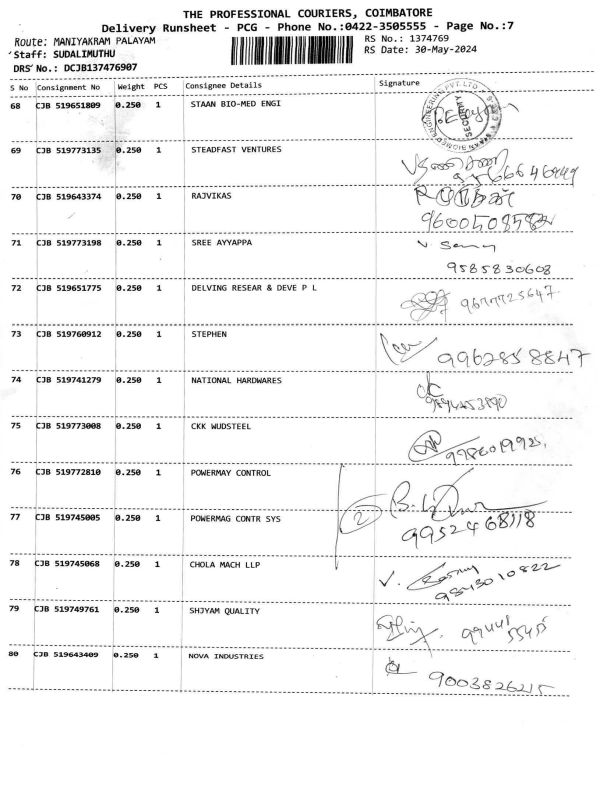 THE PROFESSIONAL COURIERS, COIMBATORE
Delivery Runsheet - PCG - Phone No.:0422-3505555 - Page No.:7
Route: MANIYAKRAM PALAYAM
RS No.: 1374769
Staff: SUDALIMUTHU
RS Date: 30-May-2024
DRS No.: DCJB137476907
S No Consignment No Weight PCS Consignee Details Signature
68 CJB 519651809 0.250 1 STAAN BIO-MED ENGI
SECURITY
69 CJB 519773135 0.250 1 STEADFAST VENTURES
70 CJB 519643374 0.250 1 RAJVIKAS
71 CJB 519773198 0.250 1 SREE AYYAPPA
9585830608
72 CJB 519651775 0.250 1 DELVING RESEAR & DEVE P L
9677725647
73 CJB 519760912 0.250 1 STEPHEN
9962858847
74 CJB 519741279 0.250 1 NATIONAL HARDWARES
75 CJB 519773008 0.250 1 CKK WUDSTEEL
76 CJB 519772810 0.250 1 POWERMAY CONTROL
2
77 CJB 519745005 0.250 1 POWERMAG CONTR SYS
9952468118
78 CJB 519745068 0.250 1 CHOLA MACH LLP
9843010822
79 CJB 519749761 0.250 1 SHJYAM QUALITY
80 CJB 519643409 0.250 1 NOVA INDUSTRIES
9003826215